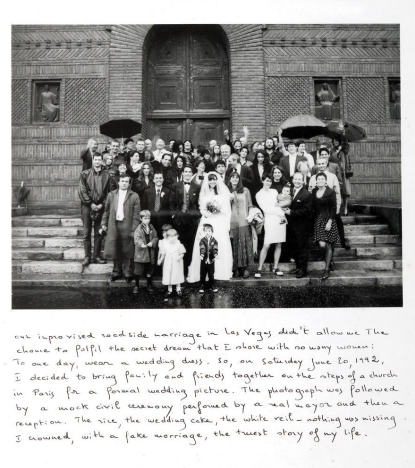 our improvised roadside marriage in Las Vegas didn't allow me The
chance to fulfil the secret dream that I share with so many women:
To one day, wear a wedding dress. So, on Saturday June 20, 1992,
I decided to bring family and friends together on the steps of a church
in Paris for a formal wedding picture. The photograph was followed
by a mock civil ceremony performed by a real mayor and then a
reception. The rice, the wedding cake, the white veil - nothing was missing.
I crowned, with a fake marriage, the truest story of my life.